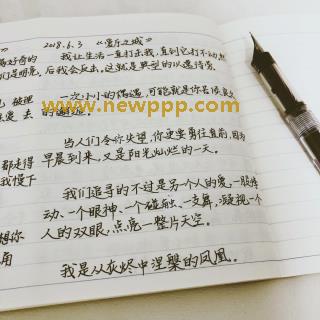 2018.6.3 《爱乐之城》
我让生活一直打击我，直到它打不动，然
后我会反击。这就是典型的以退待
一次小小的偶遇，可能就是你去
的邂逅。
www.newppp.com
当人们令你失望，你更要勇往直前，因为
早晨到来，又是阳光灿烂的一天。
我们追寻的不过是另一个人的爱，一股悸
动、一个眼神、一个碰触、一支舞，凝视一个
人的双眼，点亮一整片天空。
我是从灰烬中涅槃的凤凰。
们是明亮，
都走得
我慢下
想你
角